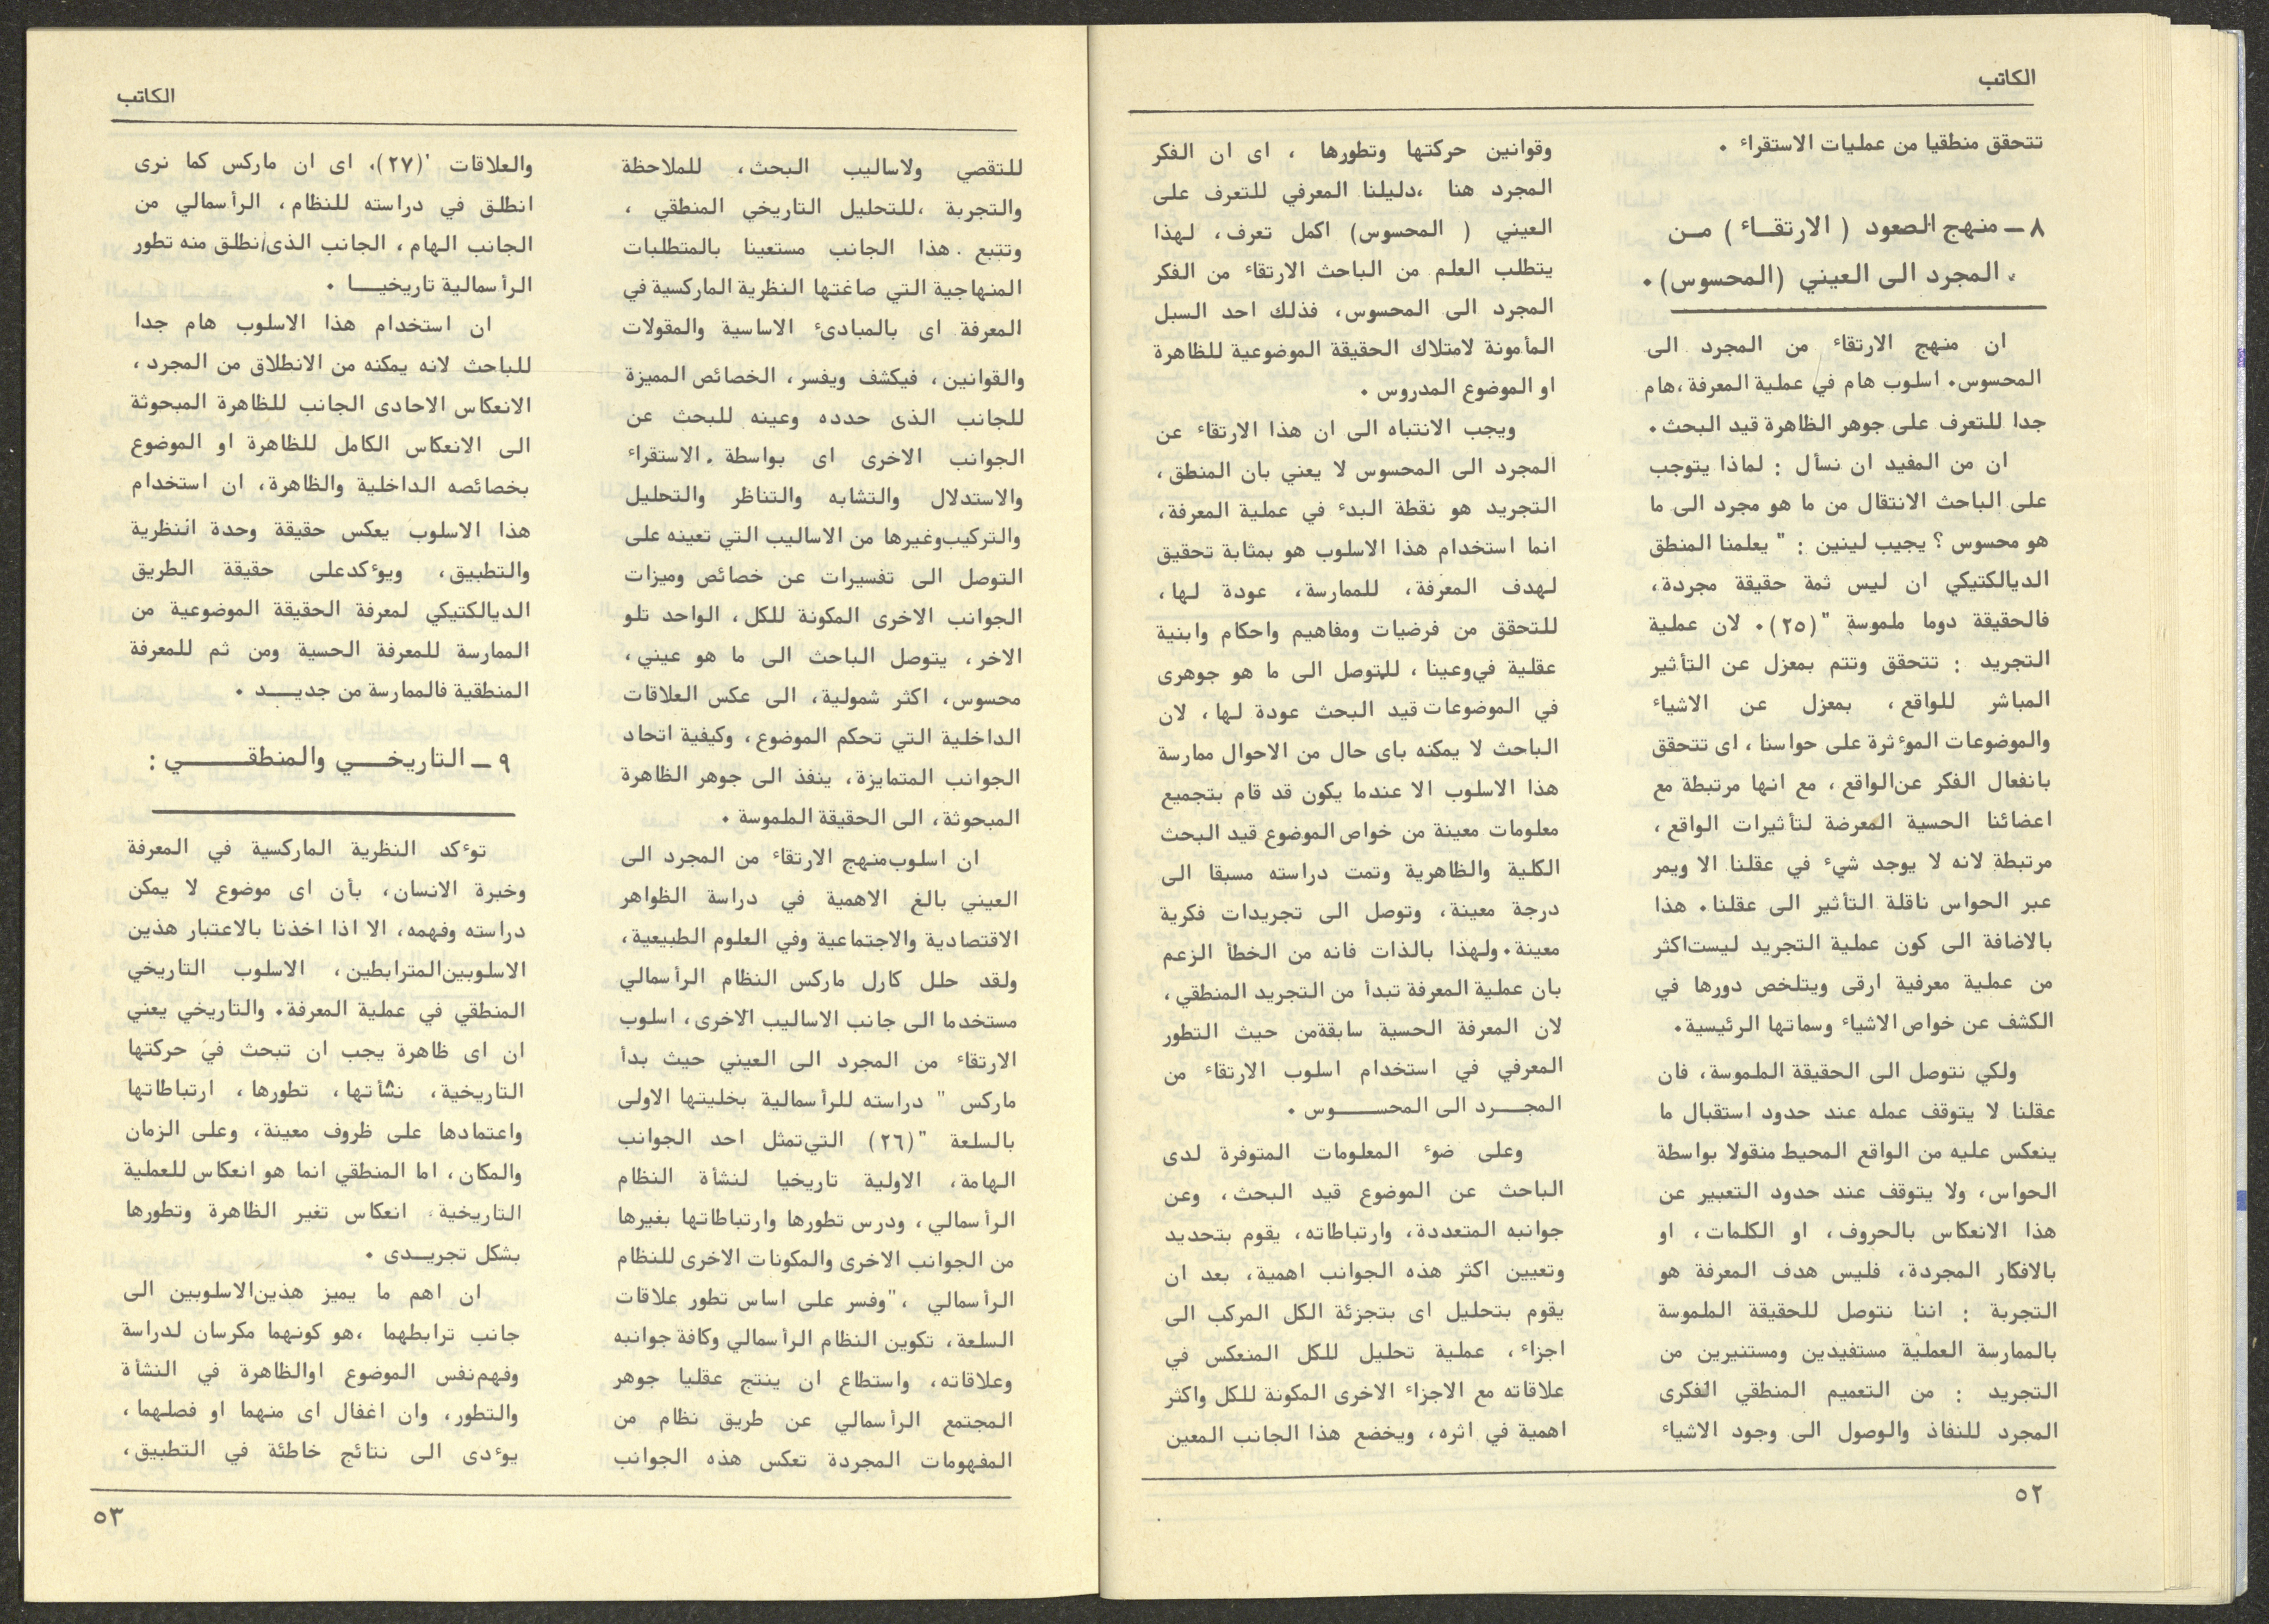 الكاتب
تتحقق منطقيا من عمليات الاستقراء ٠
٨ ــ منهج الصعود ( الارتقـاء ) مـن
المجرد الى العيني (المحسوس) ٠
ان منهج الارتقاء من المجرد الى
المحسوس٠ اسلوب هام في عملية المعرفة ،هام
جدا للتعرف على جوهر الظاهرة قيد البحث ٠
ان من المفيد ان نسأل : لماذا يتوجب
على الباحث الانتقال من ما هو مجرد الى ما
هو محسوس ؟ يجيب لينين : " يعلمنا المنطق
الديالكتيكي ان ليس ثمة حقيقة مجردة ،
فالحقيقة دوما ملموسة "(٢٥)٠ لان عملية
التجريد : تتحقق وتتم بمعزل عن التأثير
المباشر للواقع ، بمعزل عن الاشياء
والموضوعات الموءثرة على حواسنا ، اى تتحقق
بانفعال الفكر عن الواقع ، مع انها مرتبطة مع
اعضائنا الحسية المعرضة لتأثيرات الواقع ،
مرتبطة لانه لا يوجد شيء في عقلنا الا ويمر
عبر الحواس ناقلة التأثير الى عقلنا٠ هذا
بالاضافة الى كون عملية التجريد ليست اكثر
من عملية معرفية ارقى ويتلخص دورها في
الكشف عن خواص الاشياء وسماتها الرئيسية٠
ولكي نتوصل الى الحقيقة الملموسة ، فان
عقلنا لا يتوقف عمله عند حدود استقبال ما
ينعكس عليه من الواقع المحيط منقولا بواسطة
الحواس ، ولا يتوقف عند حدود التعبير عن
هذا الانعكاس بالحروف ، او الكلمات ، او
بالافكار المجردة ، فليس هدف المعرفة هو
التجربة : اننا نتوصل للحقيقة الملموسة
بالممارسة العملية مستفيدين ومستنيرين من
التجريد : من التعميم المنطقي الفكرى
المجرد للنفاذ والوصول الى وجود الاشياء
وقوانين حركتها وتطورها ، اى ان الفكر
المجرد هنا ،دليلنا المعرفي للتعرف على
العيني ( المحسوس) اكمل تعرف ، لهذا
يتطلب العلم من الباحث الارتقاء من الفكر
المجرد الى المحسوس ، فذلك احد السبل
المأمونة لامتلاك الحقيقة الموضوعية للظاهرة
او الموضوع المدروس ٠
ويجب الانتباه الى ان هذا الارتقاء عن
المجرد الى المحسوس لا يعني بان المنطق ،
التجريد هو نقطة البدء في عملية المعرفة ،
انما استخدام هذا الاسلوب هو بمثابة تحقيق
لهدف المعرفة ، للممارسة ، عودة لها ،
للتحقق من فرضيات ومفاهيم واحكام وابنية
عقلية في وعينا ، للتوصل الى ما هو جوهرى
في الموضوعات قيد البحث عودة لها ، لان
الباحث لا يمكنه باى حال من الاحوال ممارسة
هذا الاسلوب الا عندما يكون قد قام بتجميع
معلومات معينة من خواص الموضوع قيد البحث
الكلية والظاهرية وتمت دراسته مسبقا الى
درجة معينة ، وتوصل الى تجريدات فكرية
معينة٠ ولهذا بالذات فانه من الخطأ الزعم
بان عملية المعرفة تبدأ من التجريد المنطقي ،
لان المعرفة الحسية سابقةمن حيث التطور
المعرفي في استخدام اسلوب الارتقاء من
المجــرد الى المحســـوس ٠
وعلى ضوء المعلومات المتوفرة لدى
الباحث عن الموضوع قيد البحث ، وعن
جوانبه المتعددة ، وارتباطاته ، يقوم بتحديد
وتعيين اكثر هذه الجوانب اهمية ، بعد ان
يقوم بتحليل اى بتجزئة الكل المركب الى
اجزاء ، عملية تحليل للكل المنعكس في
علاقاته مع الاجزاء الاخرى المكونة للكل واكثر
اهمية في اثره ، ويخضع هذا الجانب المعين
٥٢
الكاتب
للتقصي ولاساليب البحث ، للملاحظة
والتجربة ،للتحليل التاريخي المنطقي ،
وتتبع ٠ هذا الجانب مستعينا بالمتطلبات
المنهاجية التي صاغتها النظرية الماركسية في
المعرفة اى بالمبادىء الاساسية والمقولات
والقوانين ، فيكشف ويفسر ، الخصائص المميزة
للجانب الذى حدده وعينه للبحث عن
الجوانب الاخرى اى بواسطة ٠ الاستقراء
والاستدلال والتشابه والتناظر والتحليل
والتركيب وغيرها من الاساليب التي تعينه على
التوصل الى تفسيرات عن خصائص وميزات
الجوانب الاخرى المكونة للكل ، الواحد تلو
الاخر ، يتوصل الباحث الى ما هو عيني ،
محسوس ، اكثر شمولية ، الى عكس العلاقات
الداخلية التي تحكم الموضوع ، وكيفية اتحاد
الجوانب المتمايزة ، ينفذ الى جوهر الظاهرة
المبحوثة ، الى الحقيقة الملموسة ٠
ان اسلوب منهج الارتقاء من المجرد الى
العيني بالغ الاهمية في دراسة الظواهر
الاقتصادية والاجتماعية وفي العلوم الطبيعية ،
ولقد حلل كارل ماركس النظام الرأسمالي
مستخدما الى جانب الاساليب الاخرى ، اسلوب
الارتقاء من المجرد الى العيني حيث بدأ
ماركس " دراسته للرأسمالية بخليتها الاولى
بالسلعة "(٢٦) التي تمثل احد الجوانب
الهامة ، الاولية تاريخيا لنشأة النظام
الرأسمالي ، ودرس تطورها وارتباطاتها بغيرها
من الجوانب الاخرى والمكونات الاخرى للنظام
الرأسمالي ،"وفسر على اساس تطور علاقات
السلعة ، تكوين النظام الرأسمالي وكافة جوانبه
وعلاقاته ، واستطاع ان ينتج عقليا جوهر
المجتمع الرأسمالي عن طريق نظام من
المفهومات المجردة تعكس هذه الجوانب
والعلاقات '(٢٧)٠ اى ان ماركس كما نرى
انطلق في دراسته للنظام ، الرأسمالي من
الجانب الهام ، الجانب الذى/انطلق منه تطور
الرأسمالية تاريخيــا ٠
ان استخدام هذا الاسلوب هام جدا
للباحث لانه يمكنه من الانطلاق من المجرد ،
الانعكاس الاحادى الجانب للظاهرة المبحوثة
الى الانعكاس الكامل للظاهرة او الموضوع
بخصائصه الداخلية والظاهرة ، ان استخدام
هذا الاسلوب يعكس حقيقة وحدة النظرية
والتطبيق ، ويوءكدعلى حقيقة الطريق
الديالكتيكي لمعرفة الحقيقة الموضوعية من
الممارسة للمعرفة الحسية ومن ثم للمعرفة
المنطقية فالممارسة من جديــد ٠
٩ ــ التاريخــي والمنطقـــي :
توءكد النظرية الماركسية في المعرفة
وخبرة الانسان ، بأن اى موضوع لا يمكن
دراسته وفهمه ، الا اذا اخذنا بالاعتبار هذين
الاسلوبين المترابطين ، الاسلوب التاريخي
المنطقي في عملية المعرفة٠ والتاريخي يعني
ان اى ظاهرة يجب ان تبحث في حركتها
التاريخية ، نشأتها ، تطورها ، ارتباطاتها
واعتمادها على ظروف معينة ، وعلى الزمان
والمكان ، اما المنطقي انما هو انعكاس للعملية
التاريخية ، انعكاس تغير الظاهرة وتطورها
بشكل تجريــدى ٠
ان اهم ما يميز هذين الاسلوبين الى
جانب ترابطهما ،هو كونهما مكرسان لدراسة
وفهم نفس الموضوع اوالظاهرة في النشأة
والتطور ، وان اغفال اى منهما او فصلهما ،
يوءدى الى نتائج خاطئة في التطبيق ،
٥٣